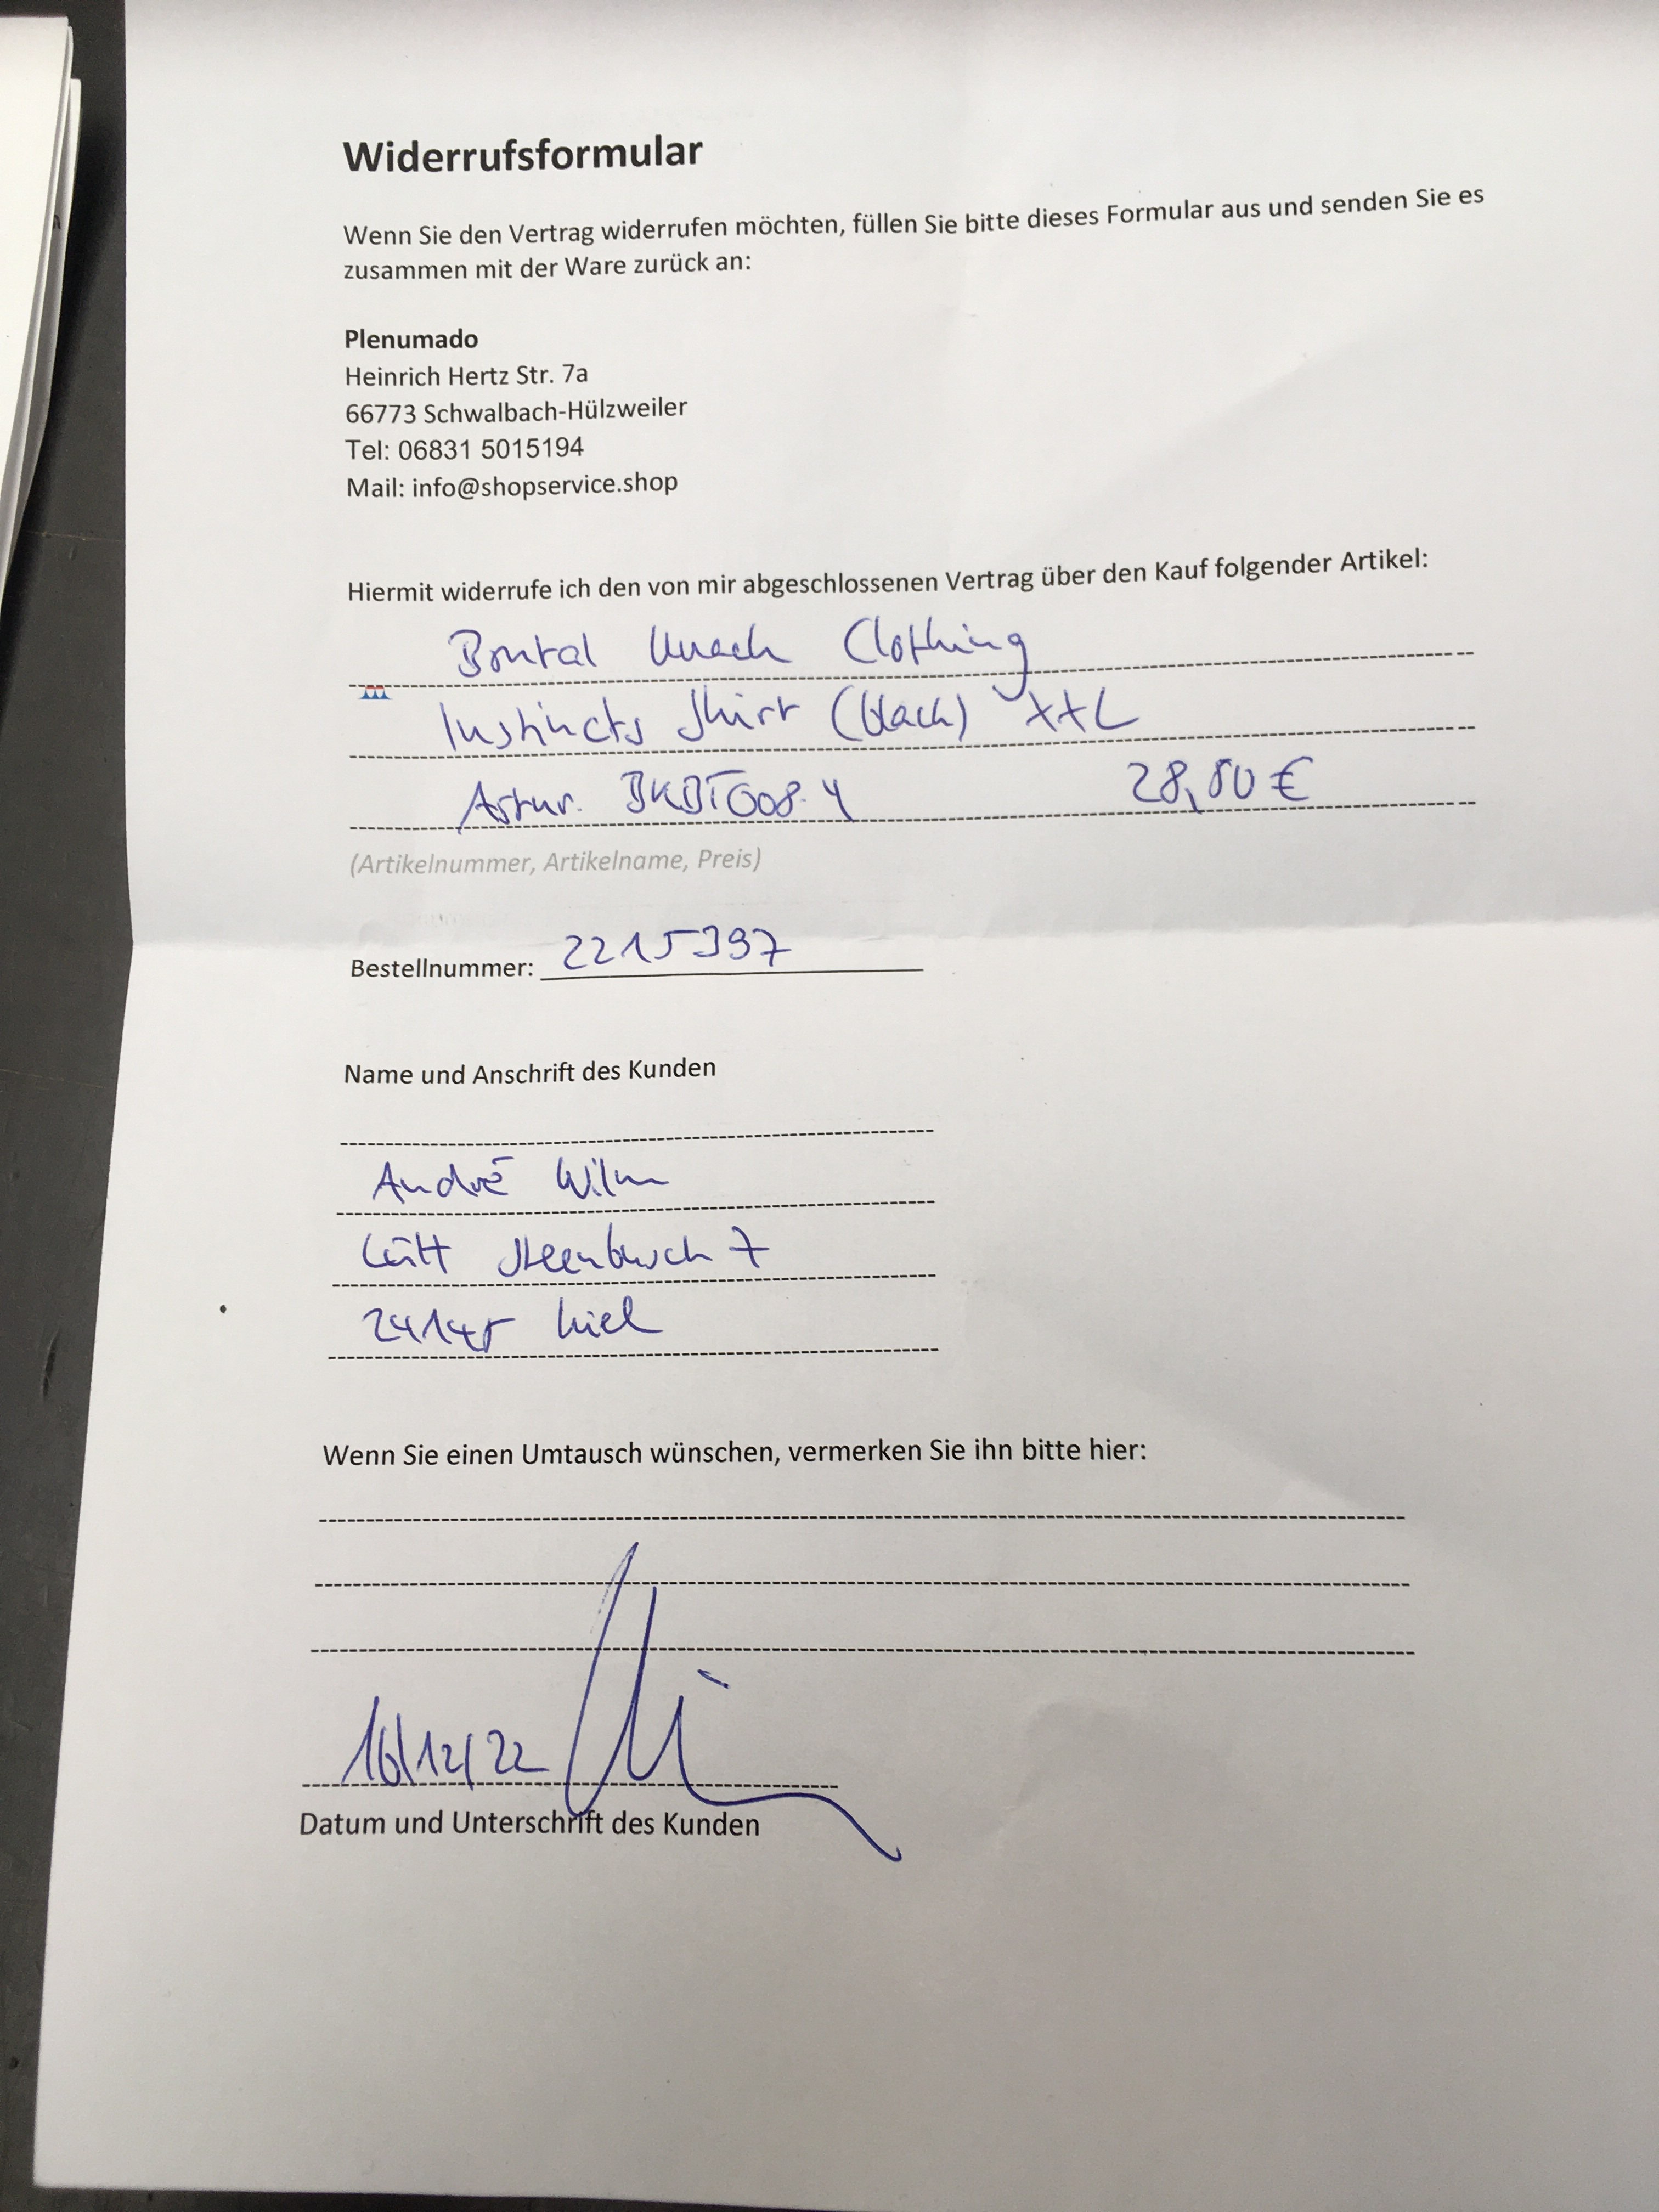 Widerrufsformular
Wenn Sie den Vertrag widerrufen möchten, füllen Sie bitte dieses Formular aus und senden Sie es
zusammen mit der Ware zurück an:
Plenumado
Heinrich Hertz Str. 7a
66773 Schwalbach-Hülzweiler
Tel: 06831 5015194
Mail: info@shopservice.shop
Hiermit widerrufe ich den von mir abgeschlossenen Vertrag über den Kauf folgender Artikel:
Brutal Knack Clothing
Instincts Shirt (black) XXL
Artnr. BKBT008.4 28,80 €
(Artikelnummer, Artikelname, Preis)
Bestellnummer: 2215397
Name und Anschrift des Kunden
André Wilm
Lütt Steenbusch 7
24145 Kiel
Wenn Sie einen Umtausch wünschen, vermerken Sie ihn bitte hier:
16/12/22
Datum und Unterschrift des Kunden